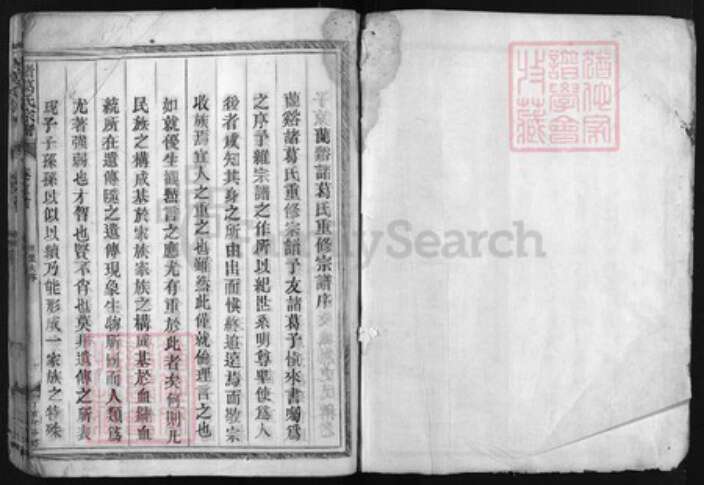 蘭谿諸葛氏重修宗譜序
蘭谿諸葛氏重修宗譜予友諸葛子愉來書囑爲
之序予維宗譜之作所以紀世系明尊卑使爲人
後者咸知其身之所由出而慎終追遠焉而敬宗
收族焉宜人之重之也雖然此僅就倫理言之也
如就優生觀點言之應尤有重於此者矣何則凡
民族之構成基於家族家族之構成基於血統血
統所在遺傳隨之遺傳現象生物所同而人類爲
尤著強弱也才智也賢不肖也莫非遺傳之所表
現子子孫孫以似以續乃能形成一家族之特殊
諸葛氏宗譜
譜學會
收藏
FamilySearch